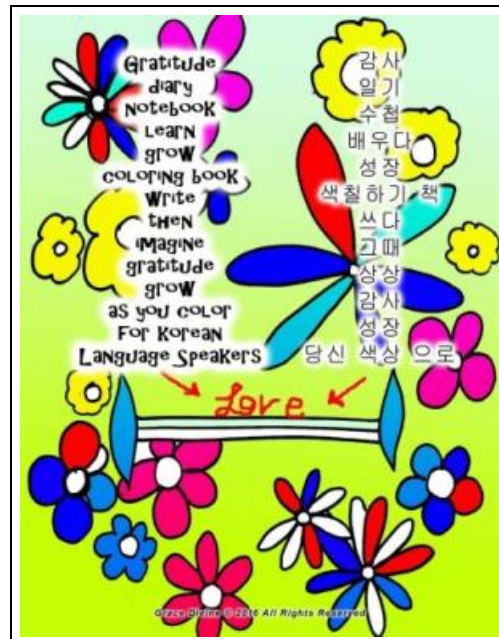 Gratitude
diary
Notebook
Learn
grow
coloring book
Write
then
imagine
gratitude
grow
as you color
For Korean
Language Speakers
감사
일기
수첩
배우다
성장
색칠하기 책
쓰다
그때
상상
감사
성장
당신 색상 으로
Love
Grace Divine © 2016 All Rights Reserved